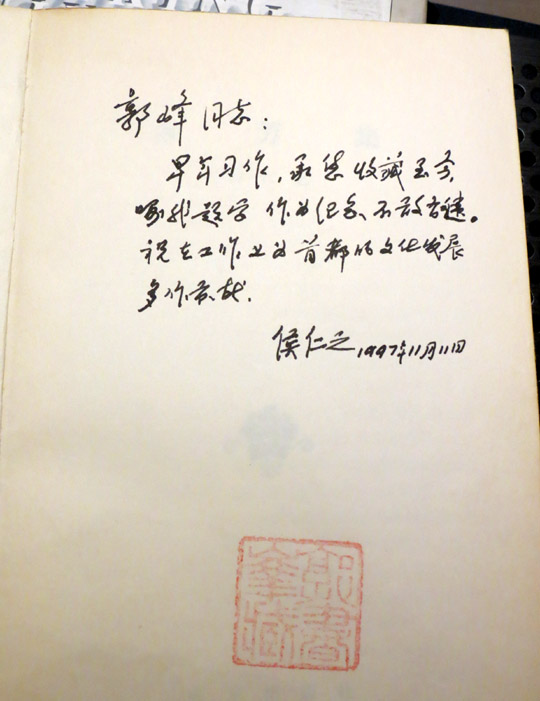 郭峰同志：
早年习作，承您收藏至今，
嘱我题字作为纪念，不敢有违。
祝在工作上为首都的文化发展
多作贡献.
侯仁之 1997年11月11日
郭峰藏書